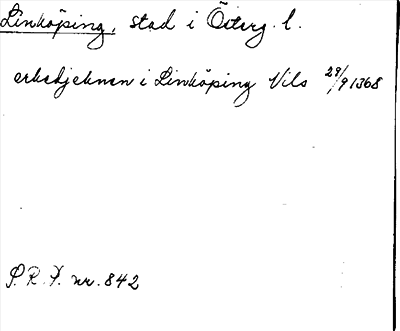 Linköping, stad i Österg. l.
erkedjeknen i Linköping Nils 29/9 1368
S. R. P. nr. 842